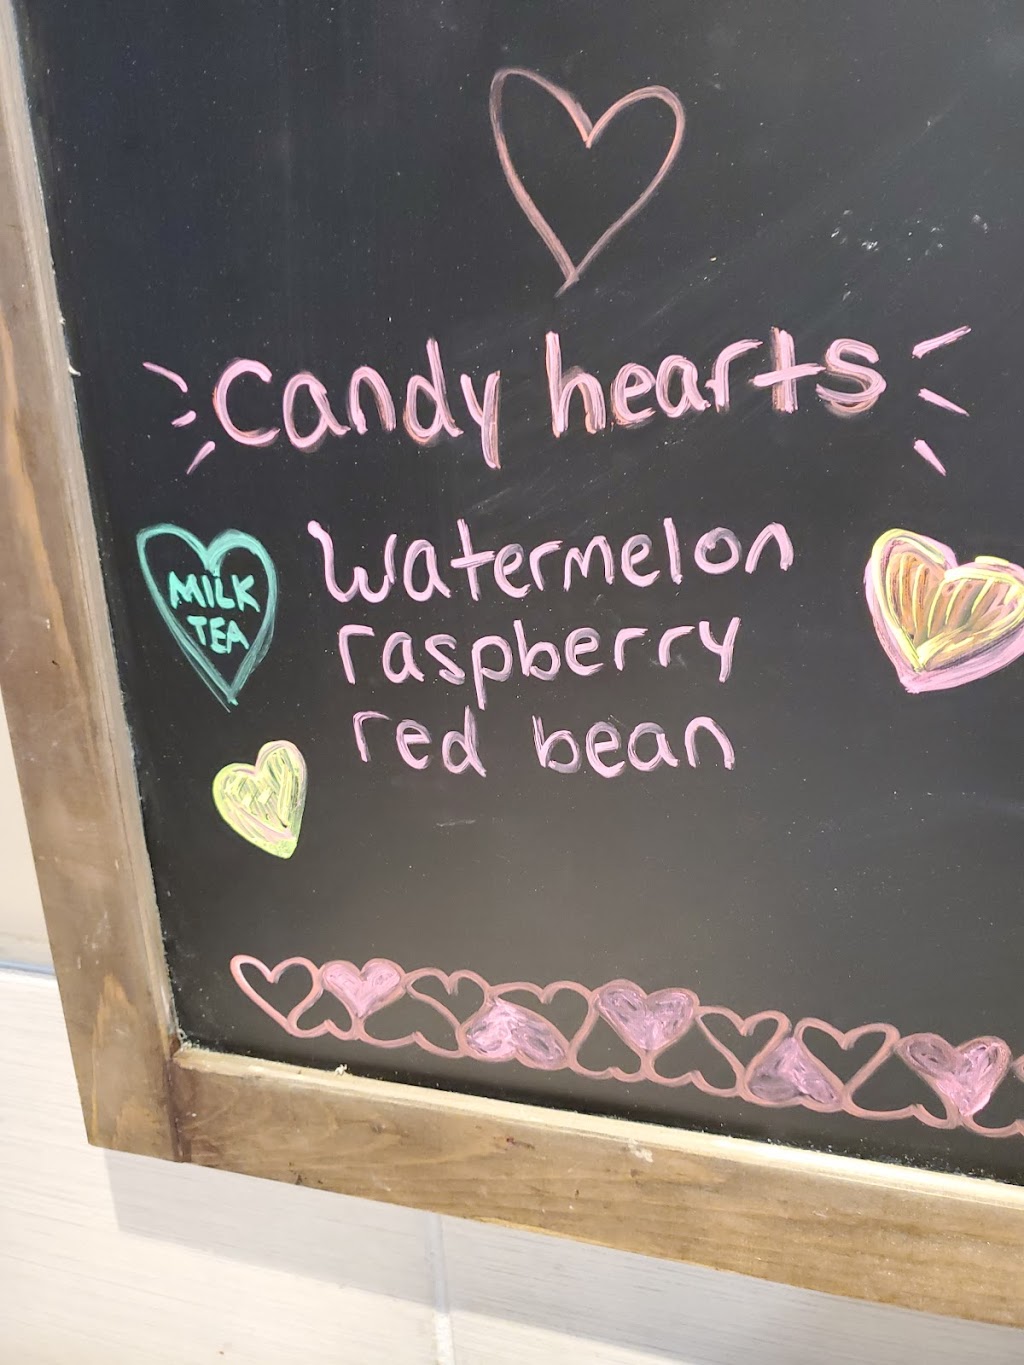 Candy hearts
MILK
TEA
Watermelon
raspberry
red bean